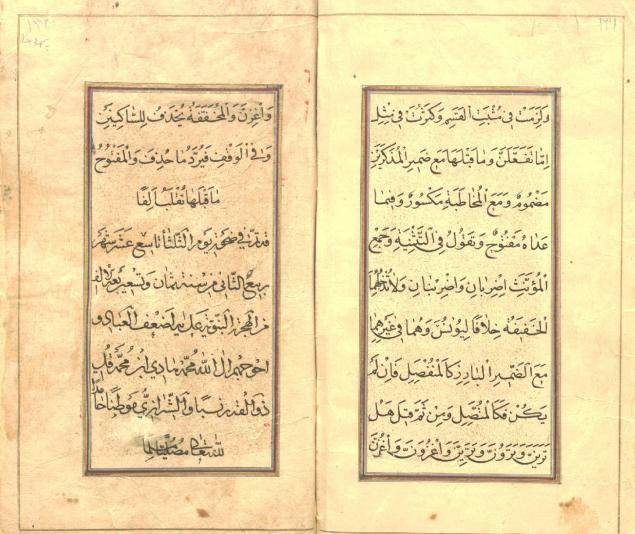 وَلَزِمَتْ فِي مُثْبَتِ القَسَمِ وَكَثُرَتْ فِي مِثْلِ
اِمَّا تَفْعَلَنَّ وَمَا قَبْلَهَا مَعَ ضَمِيرِ الْمُذَكَّرِينَ
مَضْمُومٌ وَمَعَ الْمُخَاطَبَةِ مَكْسُورٌ وَفِيمَا
عَدَاهُ مَفْتُوحٌ وَتَقُولُ فِي التَّثْنِيَةِ وَجَمْعِ
الْمُؤَنَّثِ اِضْرِبَانِ وَاضْرِبْنَانِ وَلَا تَدْخُلُهُمَا
الْخَفِيفَةُ خِلَافًا لِيُونُسَ وَهُمَا فِي غَيْرِهِمَا
مَعَ الضَّمِيرِ الْبَارِزِ كَالْمُنْفَصِلِ فَاِنْ لَمْ
يَكُنْ فَكَالْمُتَّصِلِ وَمِنْ ثَمَّ قِيلَ هَلْ
تَرَيَنَّ وَتَرَوُنَّ وَتَرَيِنَّ وَاغْزُوَنَّ وَاغْزُنَّ
وَاغْزِنَّ وَالْمُخَفَّفَةُ يُحْذَفُ لِلسَّاكِنَيْنِ
وَفِي الْوَقْفِ فَيُرَدُّ مَا حُذِفَ وَالْمَفْتُوحُ
مَا قَبْلَهَا تُقْلَبُ اَلِفًا
قد تم في ضحى يوم الثلثا تاسع عشر شهر
ربيع الثاني من سنة ثمان وتسعين بعد الالف
من الهجرة النبوية على يد اضعف العباد و
احوجهم الى الله محمد هادي ابن محمد قلي
ذو القدر نسبا والشيرازي موطنا حامدا
لله تعالى مصليا